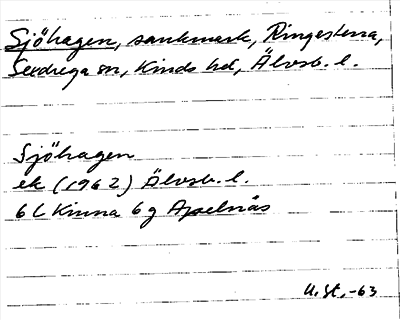 Sjöhagen, sankmark, Ringestena,
Sevdrega sn, Kinds hd, Älvsb. l.
Sjöhagen
ek (1962) Älvsb. l.
6 C Kinna 6 g Apelnäs
U. St. -63